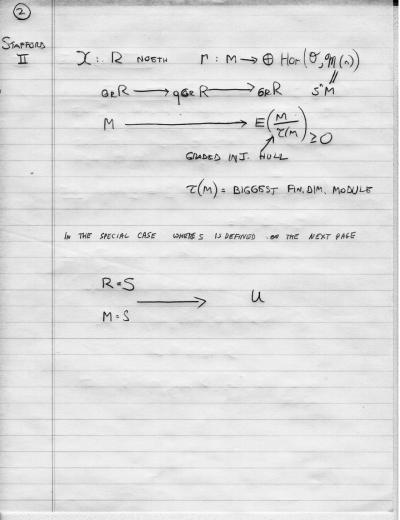 ②
STAFFORD
II
χ : R NOETH Γ : M → ⊕ Hom (O, M(n))
GR R → qGR R → GR R S°M
M → E(M/τ(M))≥0
GRADED INJ. HULL
τ(M) = BIGGEST FIN. DIM. MODULE
IN THE SPECIAL CASE WHERE S IS DEFINED ON THE NEXT PAGE
R = S → U
M = S